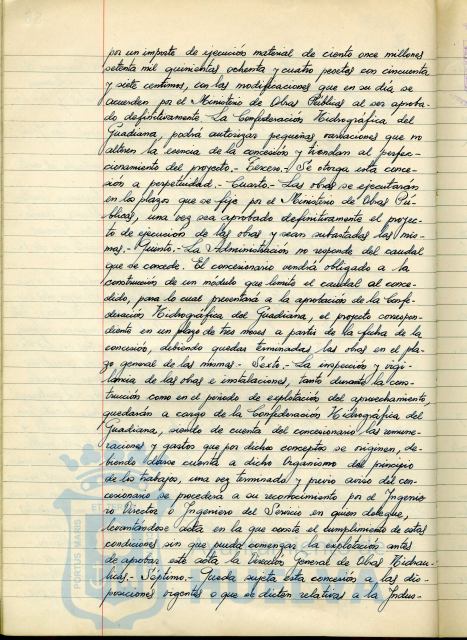 por un importe de ejecución material de ciento once millones
setenta mil quinientas ochenta y cuatro pesetas con cincuenta
y siete centimos, con las modificaciones que en su dia se
acuerden por el Ministerio de Obras Públicas al ser aproba-
do definitivamente. La Confederación Hidrográfica del
Guadiana, podrá autorizar pequeñas variaciones que no
alteren la esencia de la concesión y tiendan al perfec-
cionamiento del proyecto.- Tercero.- Se otorga esta conce-
sión a perpetuidad.- Cuarto.- Las obras se ejecutarán
en los plazos que se fije por el Ministerio de Obras Pú-
blicas, una vez sea aprobado definitivamente el proyec-
to de ejecución de las obras y sean subastadas las mis-
mas.- Quinto.- La Administración no responde del caudal
que se concede. El concesionario vendrá obligado a la
construcción de un módulo que limite el caudal al conce-
dido, para lo cual presentará a la aprobación de la Confe-
deración Hidrográfica del Guadiana, el proyecto correspon-
diente en un plazo de tres meses a partir de la fecha de la
concesión, debiendo quedar terminadas las obras en el pla-
zo general de las mismas.- Sexto.- La inspección y vigi-
lancia de las obras e instalaciones, tanto durante la cons-
trucción como en el periodo de explotación del aprovechamiento
quedarán a cargo de la Confederación Hidrográfica del
Guadiana, siendo de cuenta del concesionario las remune-
raciones y gastos que por dichos conceptos se originen, de-
biendo darse cuenta a dicho Organismo del principio
de los trabajos, una vez terminada y previo aviso del con-
cesionario se procederá a su reconocimiento por el Ingenie
ro Director o Ingeniero del Servicio en quien delegue,
levantándose acta en la que conste el cumplimiento de estas
condiciones sin que pueda comenzar la explotación antes
de aprobar este acta la Dirección General de Obras Hidrau-
licas.- Séptimo.- Queda sujeta esta concesión a las dis-
posiciones vigentes o que se dicten relativas a la Indus-
PORTUS MARIS